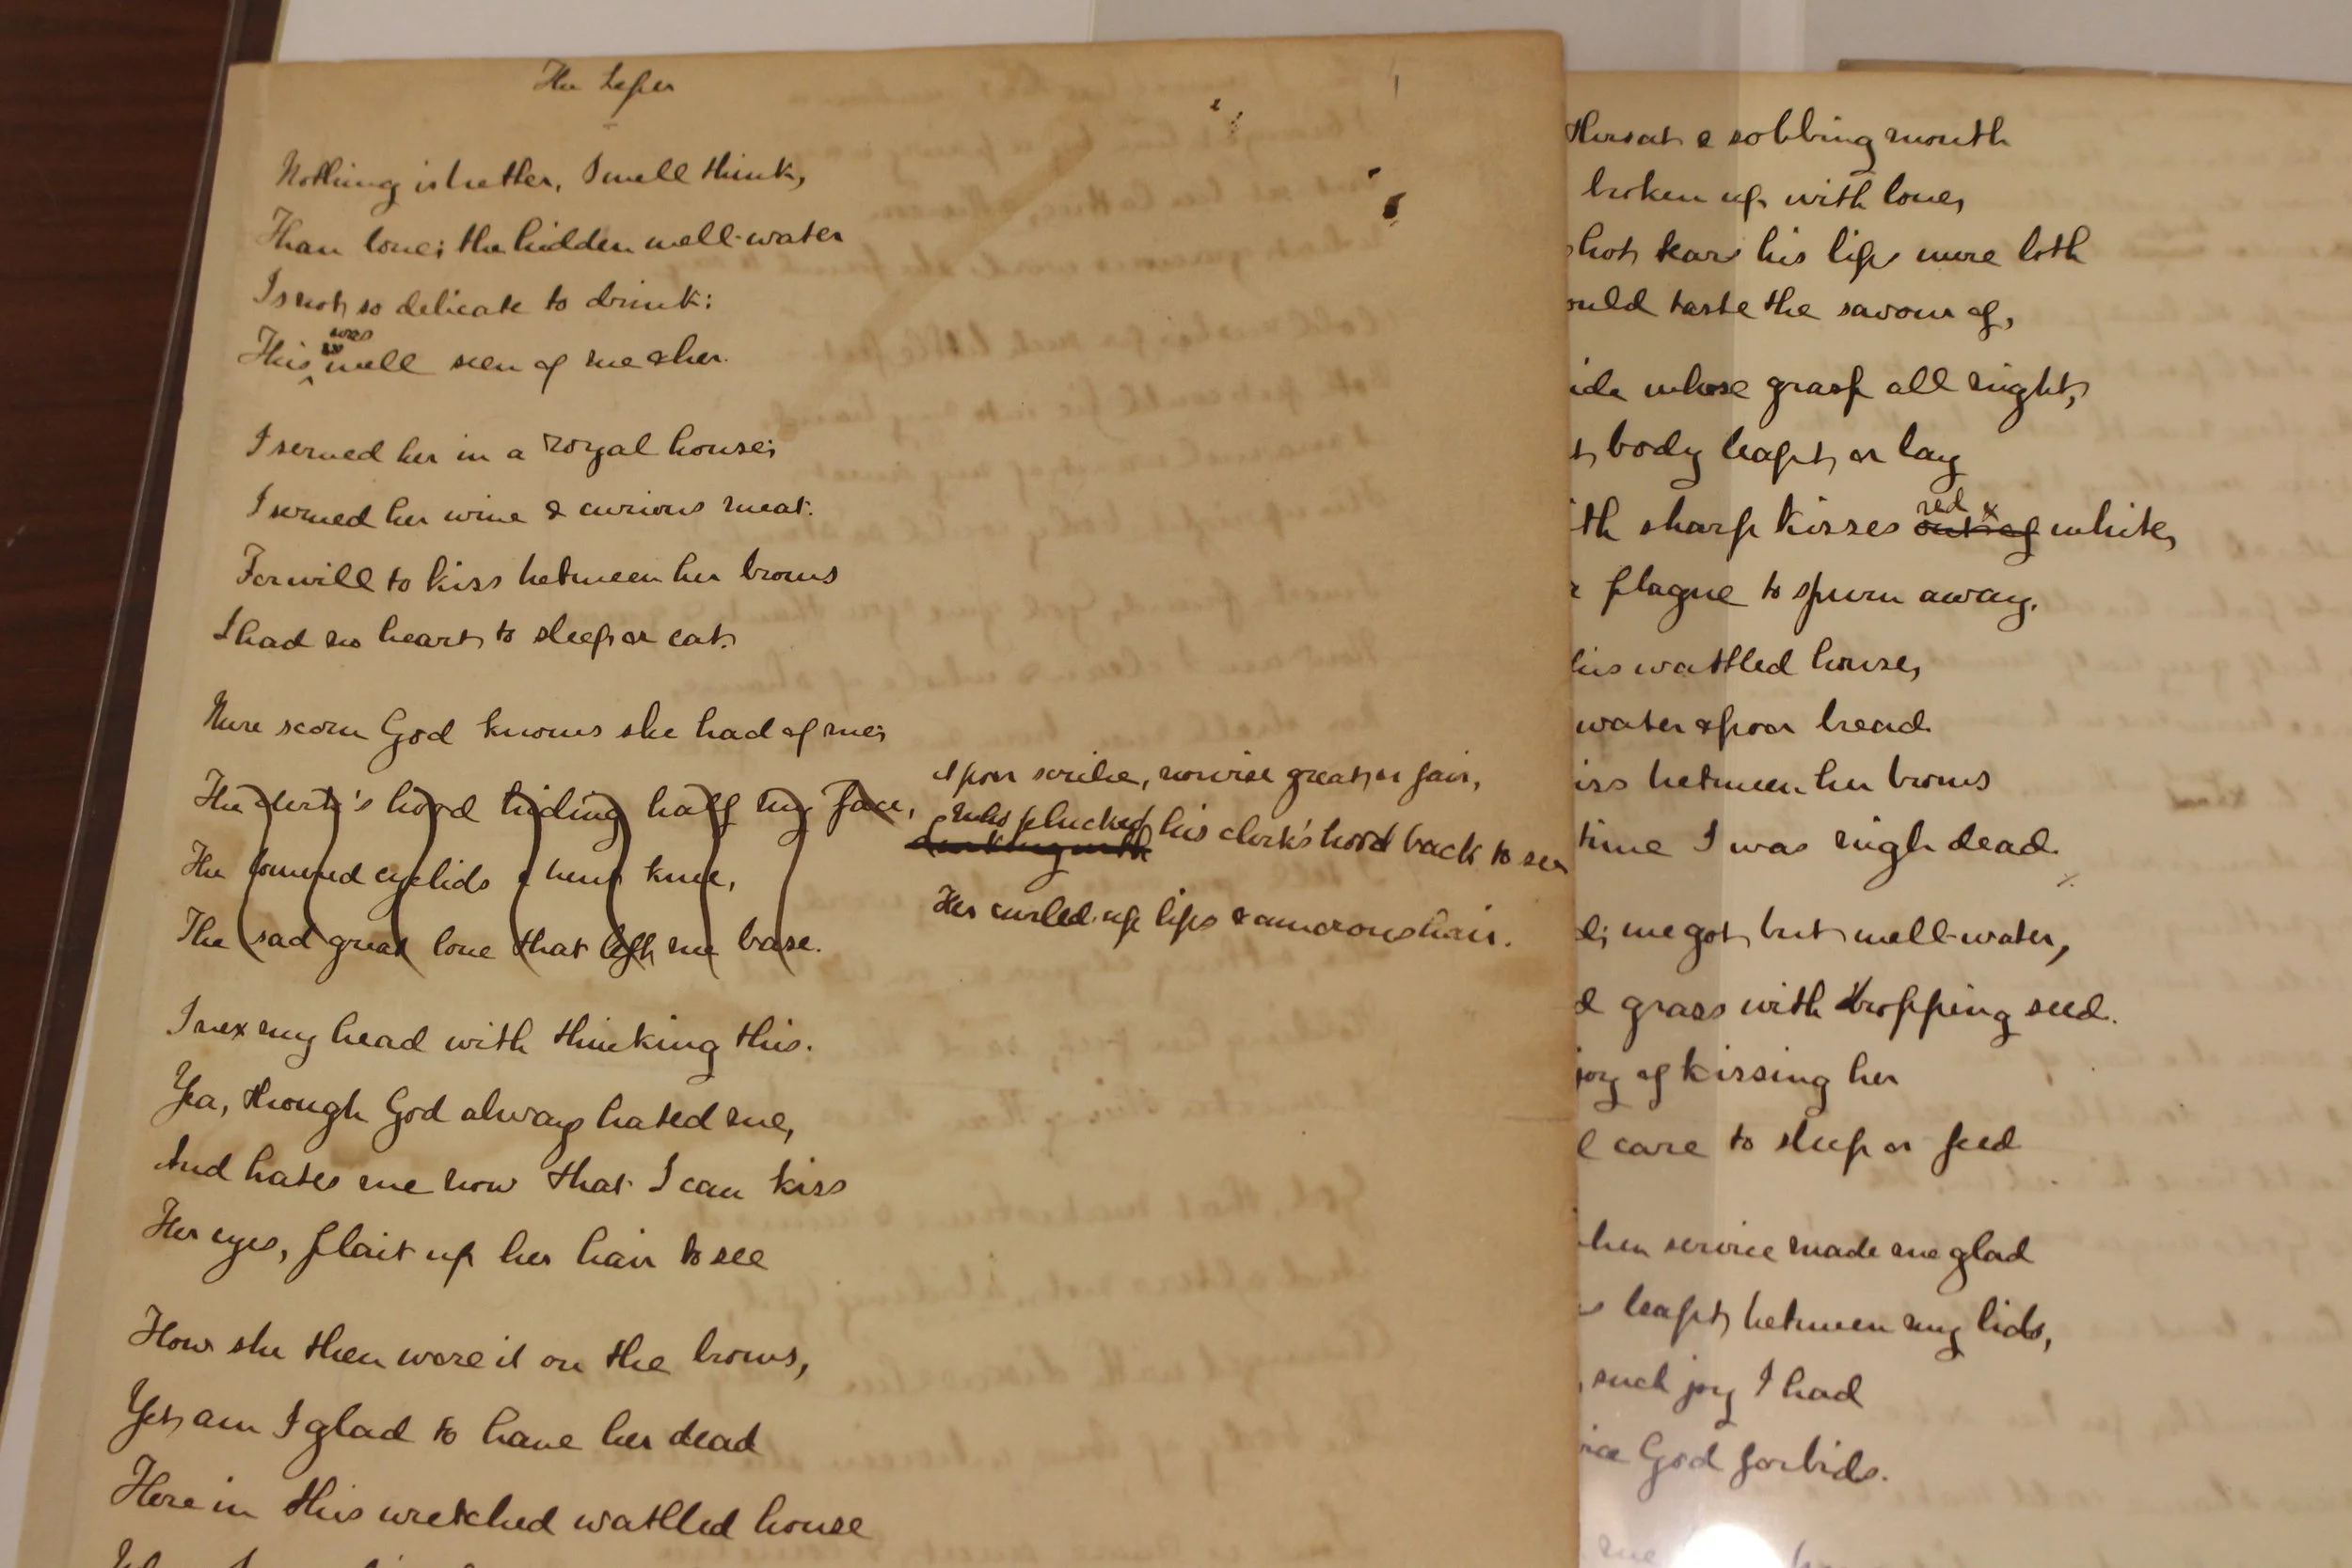 The Leper
Nothing is better, I well think,
Than love; the hidden well-water
Is not so delicate to drink:
was
This well seen of me & her.
I served her in a royal house;
I served her wine & curious meat.
For will to kiss between her brows
I had no heart to sleep or eat.
Mere scorn God knows she had of me;
The clerk's hood hiding half my face,
The lowered eyelids & bent knee,
The sad great love that left me base.
A poor scribe, nowise great or fair,
Who plucked his clerk's hood back to see
Her curled-up lips & amorous hair.
I vex my head with thinking this.
Yea, though God always hated me,
And hates me now that I can kiss
Her eyes, plait up her hair to see
How she then wore it on the brows,
Yet am I glad to have her dead
Here in this wretched wattled house
throat & sobbing mouth
broken up with love,
hot tears his lips were loth
ould taste the savour of,
ide whose grasp all night,
t body leapt or lay
red &
th sharp kisses out of white,
plague to spurn away.
his wattled house,
water & poor bread
iss between her brows
time I was nigh dead.
d; we got but well-water,
d grass with dropping seed.
joy of kissing her
l care to sleep or feed
hen service made me glad
s leapt between my lids,
such joy I had
ice God forbids.
me